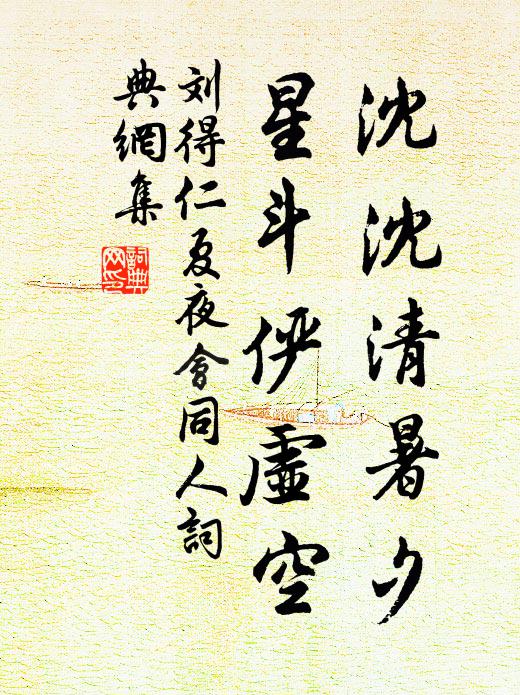 沈沈清暑夕
星斗俨虛空
刘得仁夏夜會同人詞
典網集
詞典
网印